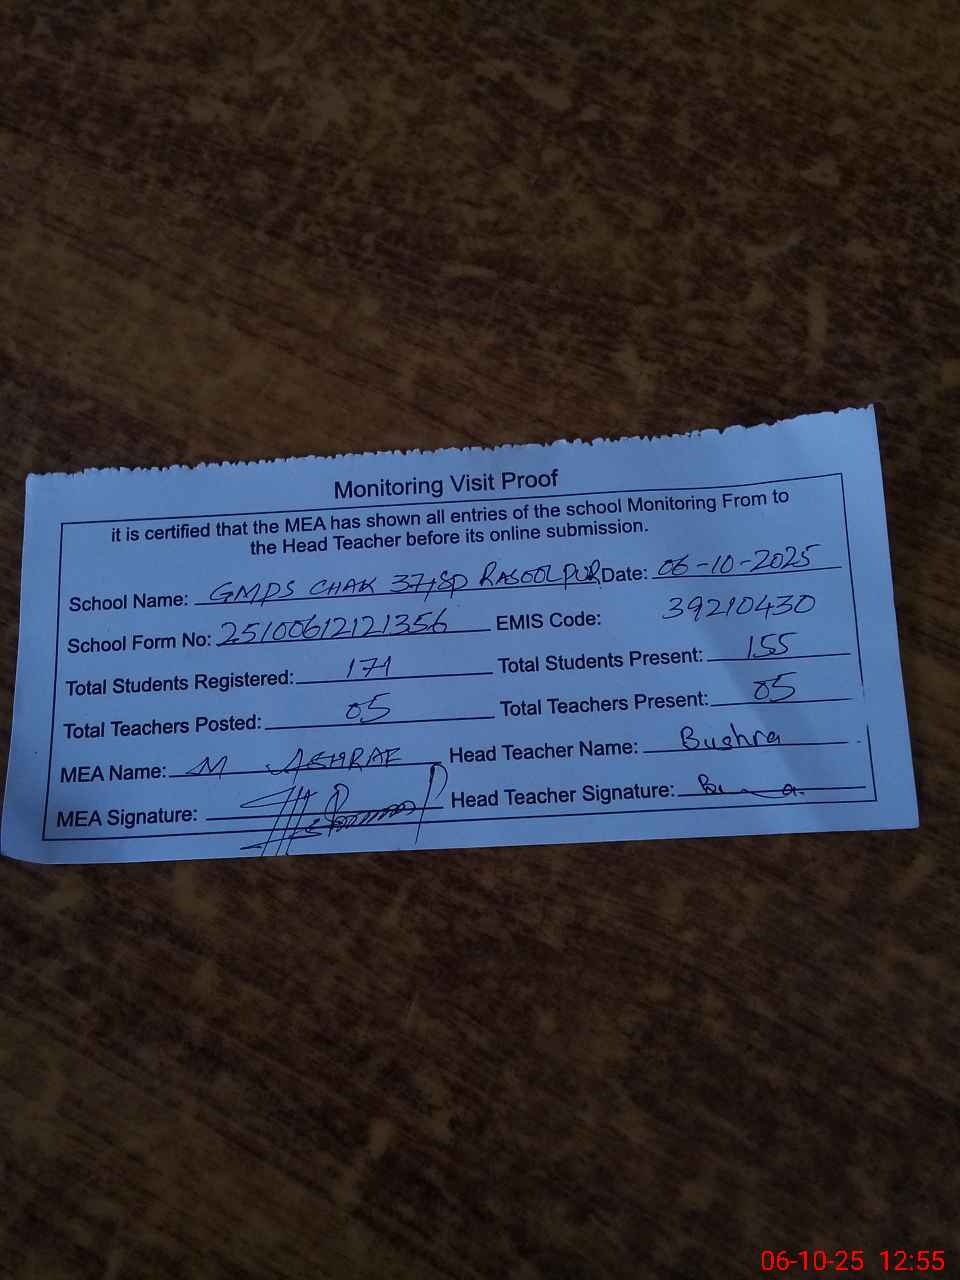 Monitoring Visit Proof
it is certified that the MEA has shown all entries of the school Monitoring From to
the Head Teacher before its online submission.
School Name: GMPS CHAK 37/SP RASOOLPUR Date: 06-10-2025
School Form No: 25100612121356 EMIS Code: 39210430
Total Students Registered: 171 Total Students Present: 155
Total Teachers Posted: 05 Total Teachers Present: 05
MEA Name: M ASHRAF Head Teacher Name: Bushra
MEA Signature: Head Teacher Signature:
06-10-25 12:55